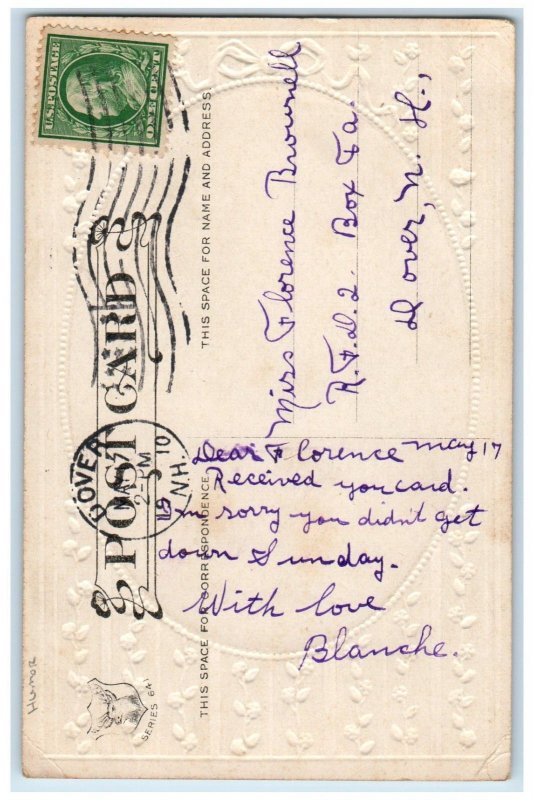 U.S. POSTAGE
ONE CENT
POST CARD
DOVER
N.H.
2-
M
10
THIS SPACE FOR NAME AND ADDRESS
Miss Florence Brownell
R.F.D. 2. Box 7a.
Dover, N. H.,
THIS SPACE FOR CORRESPONDENCE
May 17
Dear Florence
Received you card.
Im sorry you didn't get
down Sunday.
With love
Blanche.
Humor
SERIES 641